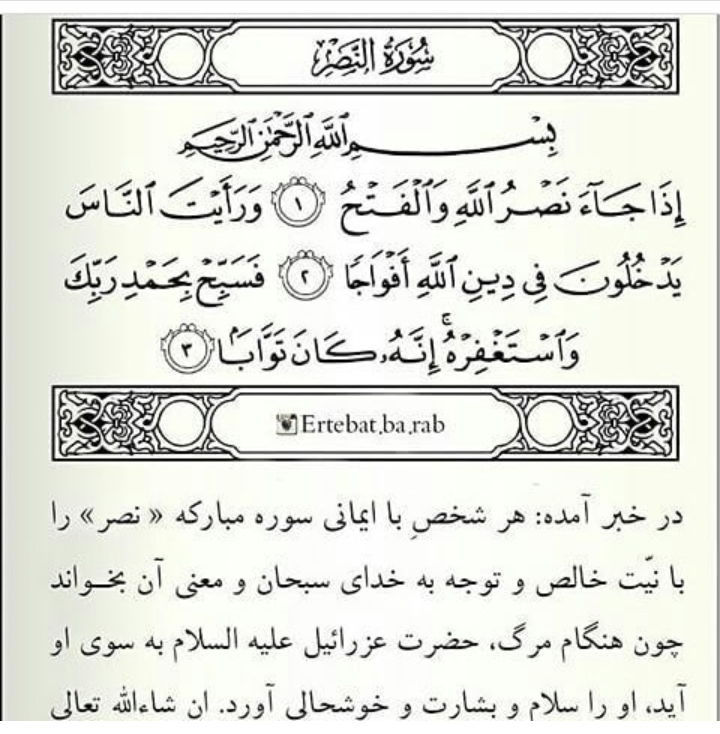 سُورَةُ النَّصْرِ
بِسْمِ ٱللَّهِ ٱلرَّحْمَٰنِ ٱلرَّحِيمِ
إِذَا جَآءَ نَصْرُ ٱللَّهِ وَٱلْفَتْحُ ١ وَرَأَيْتَ ٱلنَّاسَ
يَدْخُلُونَ فِى دِينِ ٱللَّهِ أَفْوَاجًا ٢ فَسَبِّحْ بِحَمْدِ رَبِّكَ
وَٱسْتَغْفِرْهُ ۚ إِنَّهُۥ كَانَ تَوَّابَۢا ٣
Ertebat.ba.rab
در خبر آمده: هر شخصِ با ایمانی سوره مبارکه «نصر» را
با نیّت خالص و توجه به خدای سبحان و معنی آن بخـواند
چون هنگام مرگ، حضرت عزرائیل علیه السلام به سوی او
آید، او را سلام و بشارت و خوشحالی آورد. ان شاءالله تعالی